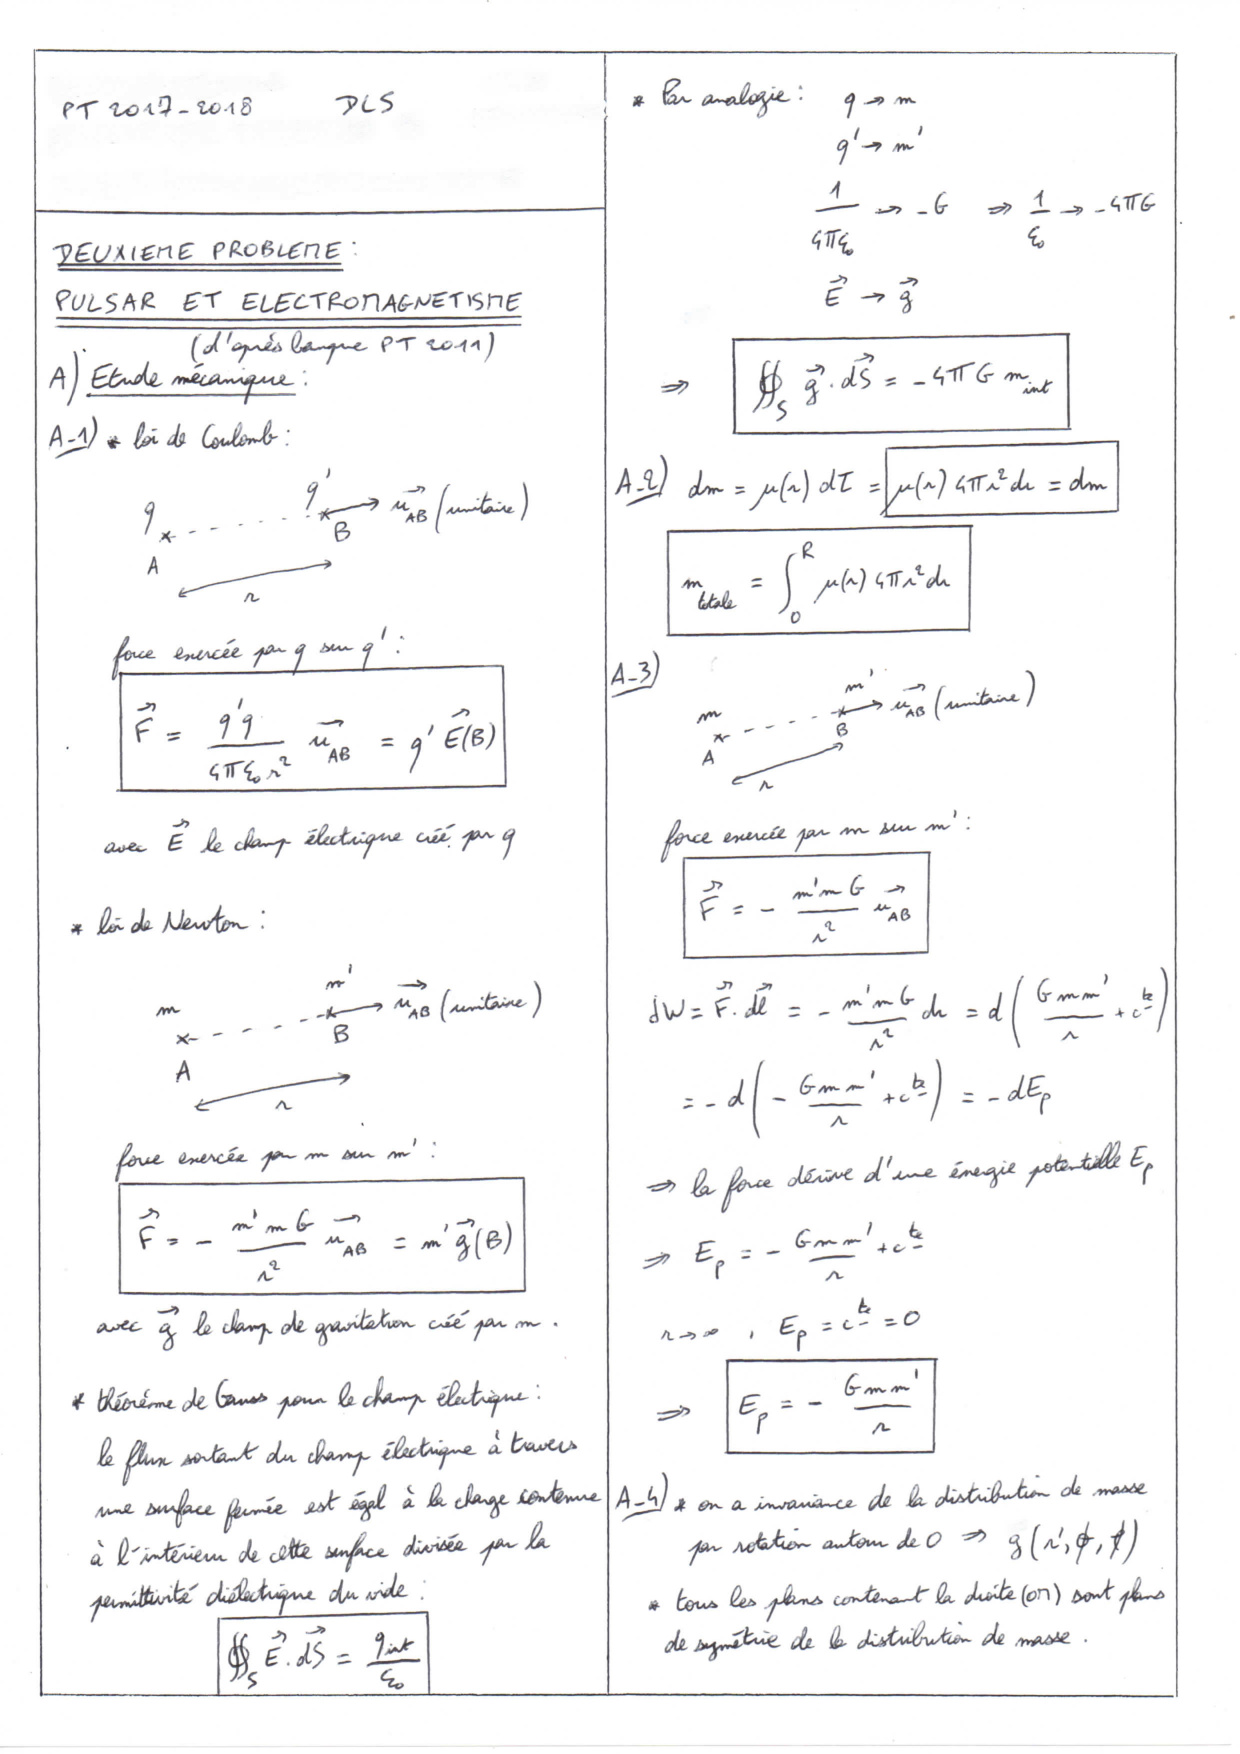 PT 2017-2018 DLS
DEUXIEME PROBLEME :
PULSAR ET ELECTROMAGNETISME
(d'après banque PT 2011)
A) Etude mécanique :
A-1) * loi de Coulomb :
q q' u⃗_AB (unitaire)
A B
r
force exercée par q sur q' :
F⃗ = q'q / (4πε₀r²) u⃗_AB = q' E⃗(B)
avec E⃗ le champ électrique créé par q
* loi de Newton :
m m' u⃗_AB (unitaire)
A B
r
force exercée par m sur m' :
F⃗ = - m'mG / r² u⃗_AB = m' g⃗(B)
avec g⃗ le champ de gravitation créé par m.
* théorème de Gauss pour le champ électrique :
le flux sortant du champ électrique à travers
une surface fermée est égal à la charge contenue
à l'intérieur de cette surface divisée par la
permittivité diélectrique du vide :
∯_S E⃗.dS⃗ = q_int / ε₀
* Par analogie : q → m
q' → m'
1/(4πε₀) → -G ⇒ 1/ε₀ → -4πG
E⃗ → g⃗
⇒ ∯_S g⃗.dS⃗ = -4πG m_int
A-2) dm = μ(r) dτ = μ(r) 4πr²dr = dm
m_totale = ∫₀^R μ(r) 4πr²dr
A-3)
m m' u⃗_AB (unitaire)
A B
r
force exercée par m sur m' :
F⃗ = - m'mG / r² u⃗_AB
δW = F⃗.dl⃗ = - m'mG / r² dr = d(Gmm'/r + c^te)
= -d(-Gmm'/r + c^te) = -dE_p
⇒ la force dérive d'une énergie potentielle E_p
⇒ E_p = -Gmm'/r + c^te
r→∞, E_p = c^te = 0
⇒ E_p = - Gmm'/r
A-4) * on a invariance de la distribution de masse
par rotation autour de O ⇒ g(r, θ̸, φ̸)
* tous les plans contenant la droite (OM) sont plans
de symétrie de la distribution de masse.